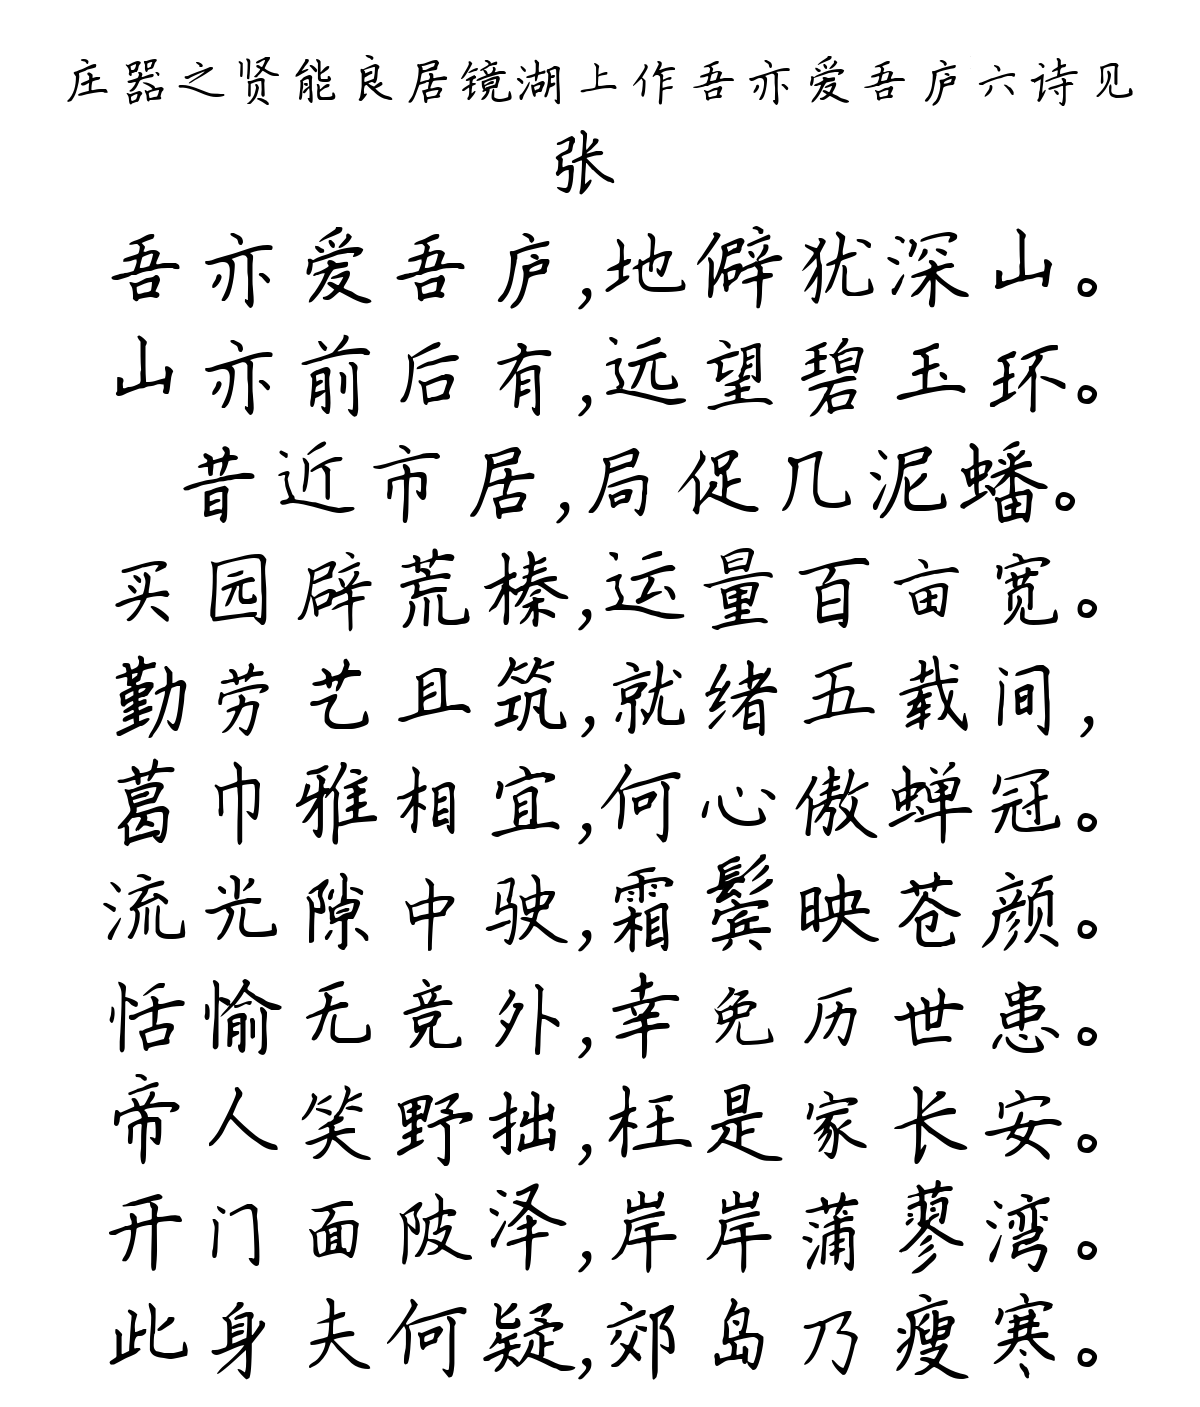 庄器之贤能良居镜湖上作吾亦爱吾庐六诗见
张
吾亦爱吾庐,地僻犹深山。
山亦前后有,远望碧玉环。
昔近市居,局促几泥蟠。
买园辟荒榛,运量百亩宽。
勤劳艺且筑,就绪五载间,
葛巾雅相宜,何心傲蝉冠。
流光隙中驶,霜鬓映苍颜。
恬愉无竞外,幸免历世患。
帝人笑野拙,枉是家长安。
开门面陂泽,岸岸蒲蓼湾。
此身夫何疑,郊岛乃瘦寒。